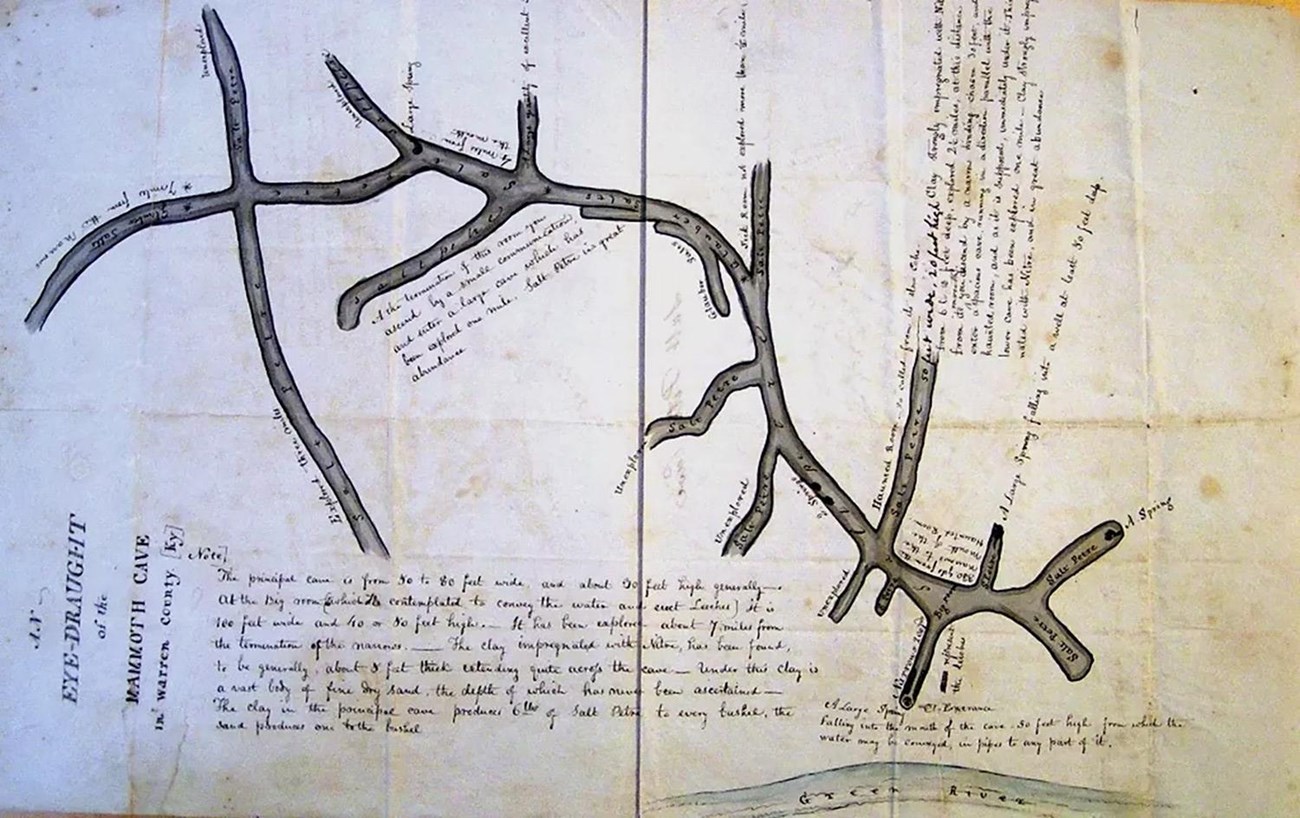 AN
EYE-DRAUGHT
of the
MAMMOTH CAVE
in Warren County [Ky]
Note]
The principal cave is from 50 to 80 feet wide, and about 30 feet high generally—
At the Big room [which it is contemplated to convey the water and erect Leaches] it is
100 feet wide and 40 or 50 feet high.— It has been explored about 7 miles from
the termination of the narrows.— The clay impregnated with Nitre, has been found,
to be generally, about 5 feet thick extending quite across the cave— Under this clay is
a vast body of fine dry sand, the depth of which has never been ascertained—
The clay in the principal cave produces 6 lbs of Salt Petre to every bushel, the
sand produces one to the bushel
Unexplored
Salt Petre
7 miles from the Narrows
Glauber Salts
Explored three miles
Salt Petre
Unexplored
Large Spring
4 miles from
the mouth
Large quantity of excellent
Glauber Salts
At the termination of this room you
ascend by a small communication,
and enter a large cave which has
been explored one mile. Salt Petre in great
abundance
Glauber Salts
Sick Room not explored more than
Salt Petre
Unexplored
Salt Petre
Unexplored
Salt Petre
2 Springs
Haunted Room— so called from its
Salt Petre
50 feet wide, 20 feet high Clay strongly impregnated with
from 6 to 8 feet deep explored 2½ miles, at this distance
from its mouth you descend by a narrow winding chasm 30 feet, and
enter a spacious cave running in a direction parallel with the
haunted room, and as it is supposed, immediately under it This
lower Cave has been explored one mile— Clay strongly
nated with Nitre and in great abundance
A Large Spring falling into a well at least 30 feet deep.
Unexplored
narrows to the
mouth of the
Haunted Room
Big room
Salt Petre
A Spring
Salt Petre
the leaches
A Large Spring
Entrance
Falling into the mouth of the cave 30 feet high from which the
water may be conveyed, in pipes to any part of it.
Green River